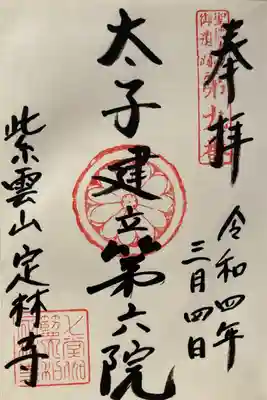 奉拝
令和四年
三月四日
太子建立第六院
紫雲山定林寺